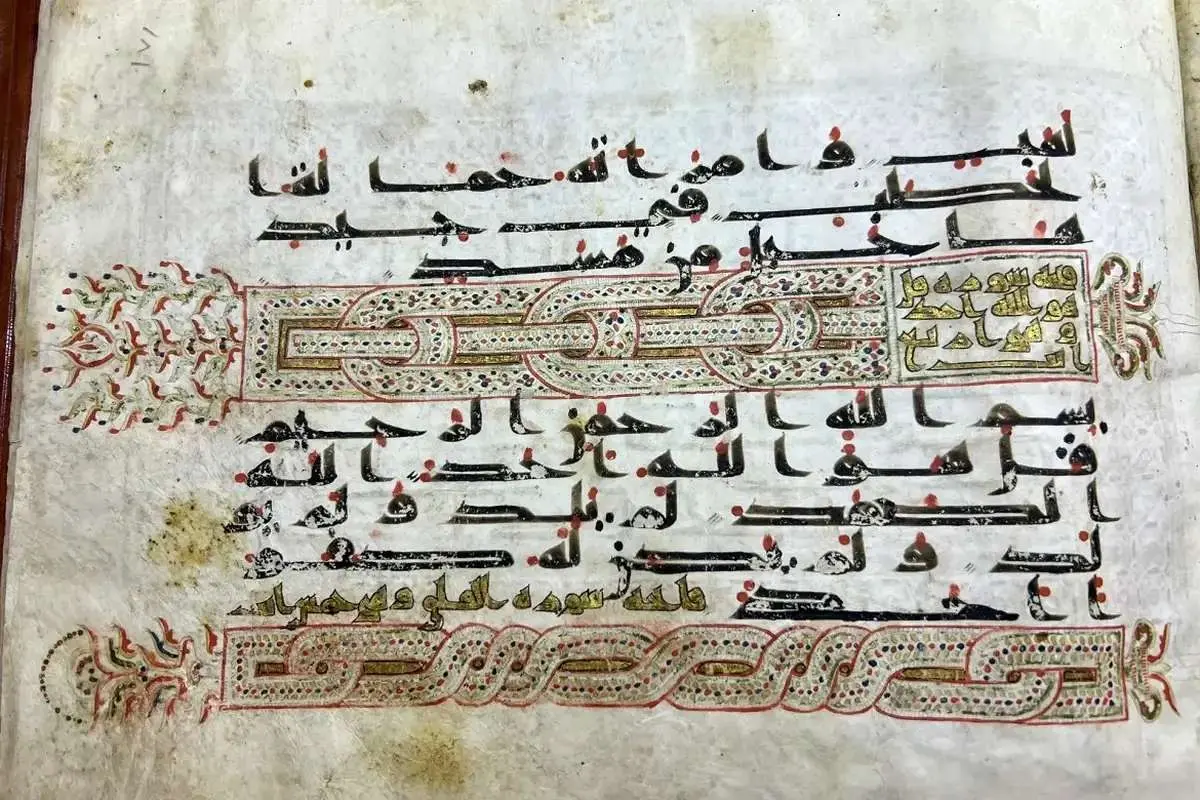 ١٧١
لهب و امراته حمالة ا
لحطب في جيد
ها حبل من مسد
سورة قل
هو الله احد
و هي اربع
بسم الله الرحمن الرحيم
قل هو الله احد الله
الصمد لم يلد و لم يو
لد و لم يكن له كفو
ا احد فاتحة سورة الفلق و هي خمس ايات